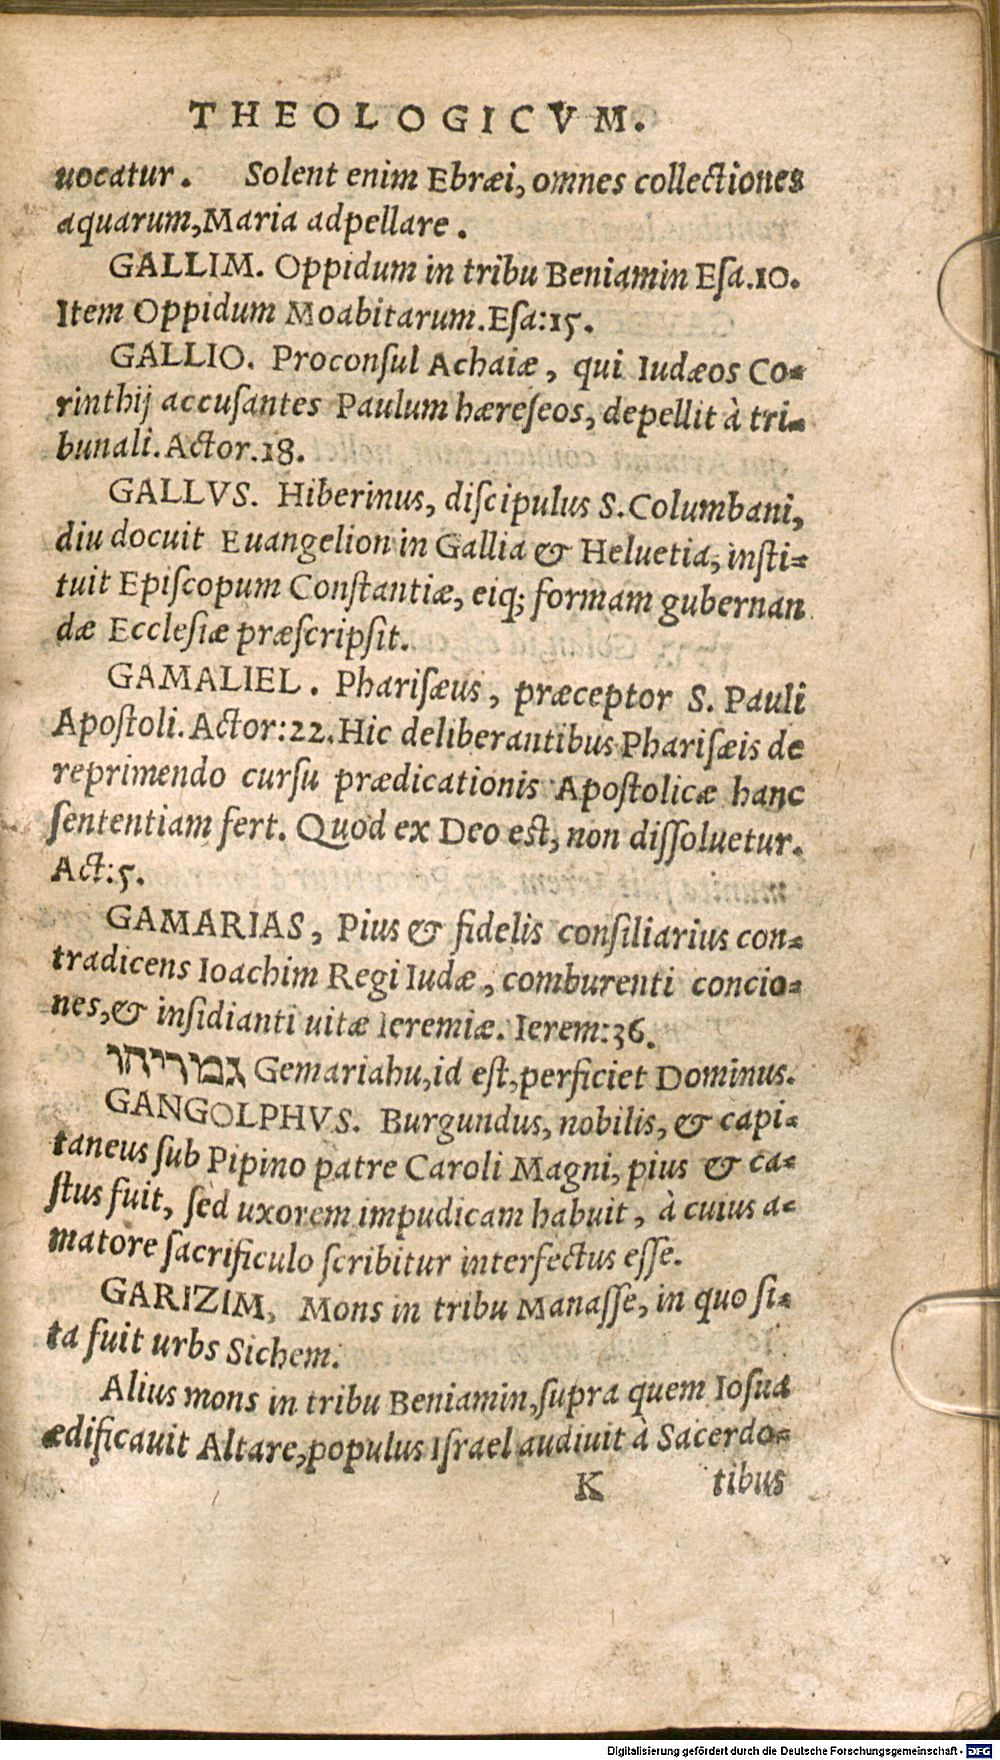 THEOLOGICVM.
uocatur. Solent enim Ebræi, omnes collectiones
aquarum, Maria adpellare.
GALLIM. Oppidum in tribu Beniamin Eſa.10.
Item Oppidum Moabitarum. Eſa:15.
GALLIO. Proconſul Achaiæ, qui Iudæos Co-
rinthij accuſantes Paulum hæreſeos, depellit à tri-
bunali. Actor.18.
GALLVS. Hiberinus, diſcipulus S. Columbani,
diu docuit Euangelion in Gallia & Heluetia, inſti-
tuit Epiſcopum Conſtantiæ, eiq; formam gubernan
dæ Eccleſiæ præſcripſit.
GAMALIEL. Phariſæus, præceptor S. Pauli
Apoſtoli. Actor:22. Hic deliberantibus Phariſæis de
reprimendo curſu prædicationis Apoſtolicæ hanc
ſententiam fert. Quod ex Deo eſt, non diſſoluetur.
Act:5.
GAMARIAS, Pius & fidelis conſiliarius con-
tradicens Ioachim Regi Iudæ, comburenti concio-
nes, & inſidianti uitæ Ieremiæ. Ierem:36.
גמריהו Gemariahu, id eſt, perficiet Dominus.
GANGOLPHVS. Burgundus, nobilis, & capi-
taneus ſub Pipino patre Caroli Magni, pius & ca-
ſtus fuit, ſed uxorem impudicam habuit, à cuius a-
matore ſacrificulo ſcribitur interfectus eſſe.
GARIZIM, Mons in tribu Manaſſe, in quo ſi-
ta fuit urbs Sichem.
Alius mons in tribu Beniamin, ſupra quem Ioſua
ædificauit Altare, populus Iſrael audiuit à Sacerdo-
K tibus
Digitalisierung gefördert durch die Deutsche Forschungsgemeinschaft - DFG